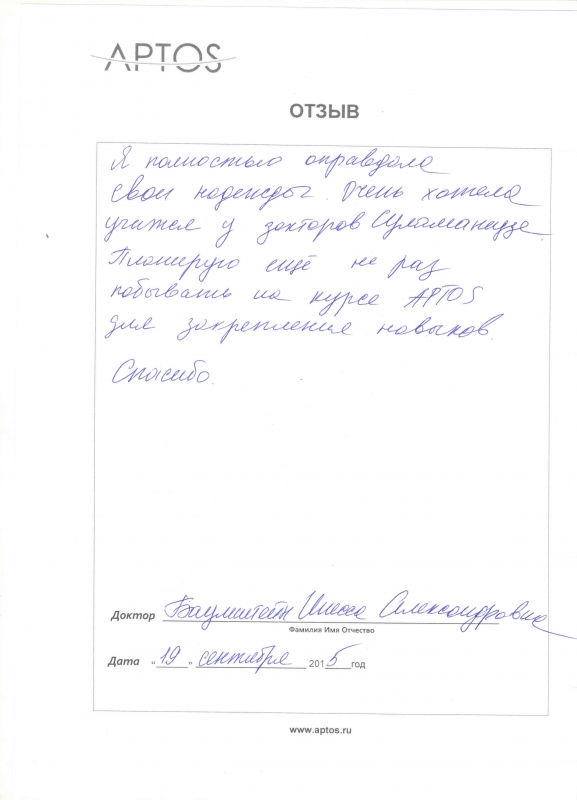 APTOS
ОТЗЫВ
Я полностью оправдала
свои надежды. Очень хотела
учится у докторов Суламанидзе
Планирую ещё не раз
побывать на курсе APTOS
для закрепления навыков.
Спасибо.
Доктор Баумштейн Инесса Александровна
Фамилия Имя Отчество
Дата "19" сентября 2015 год
www.aptos.ru